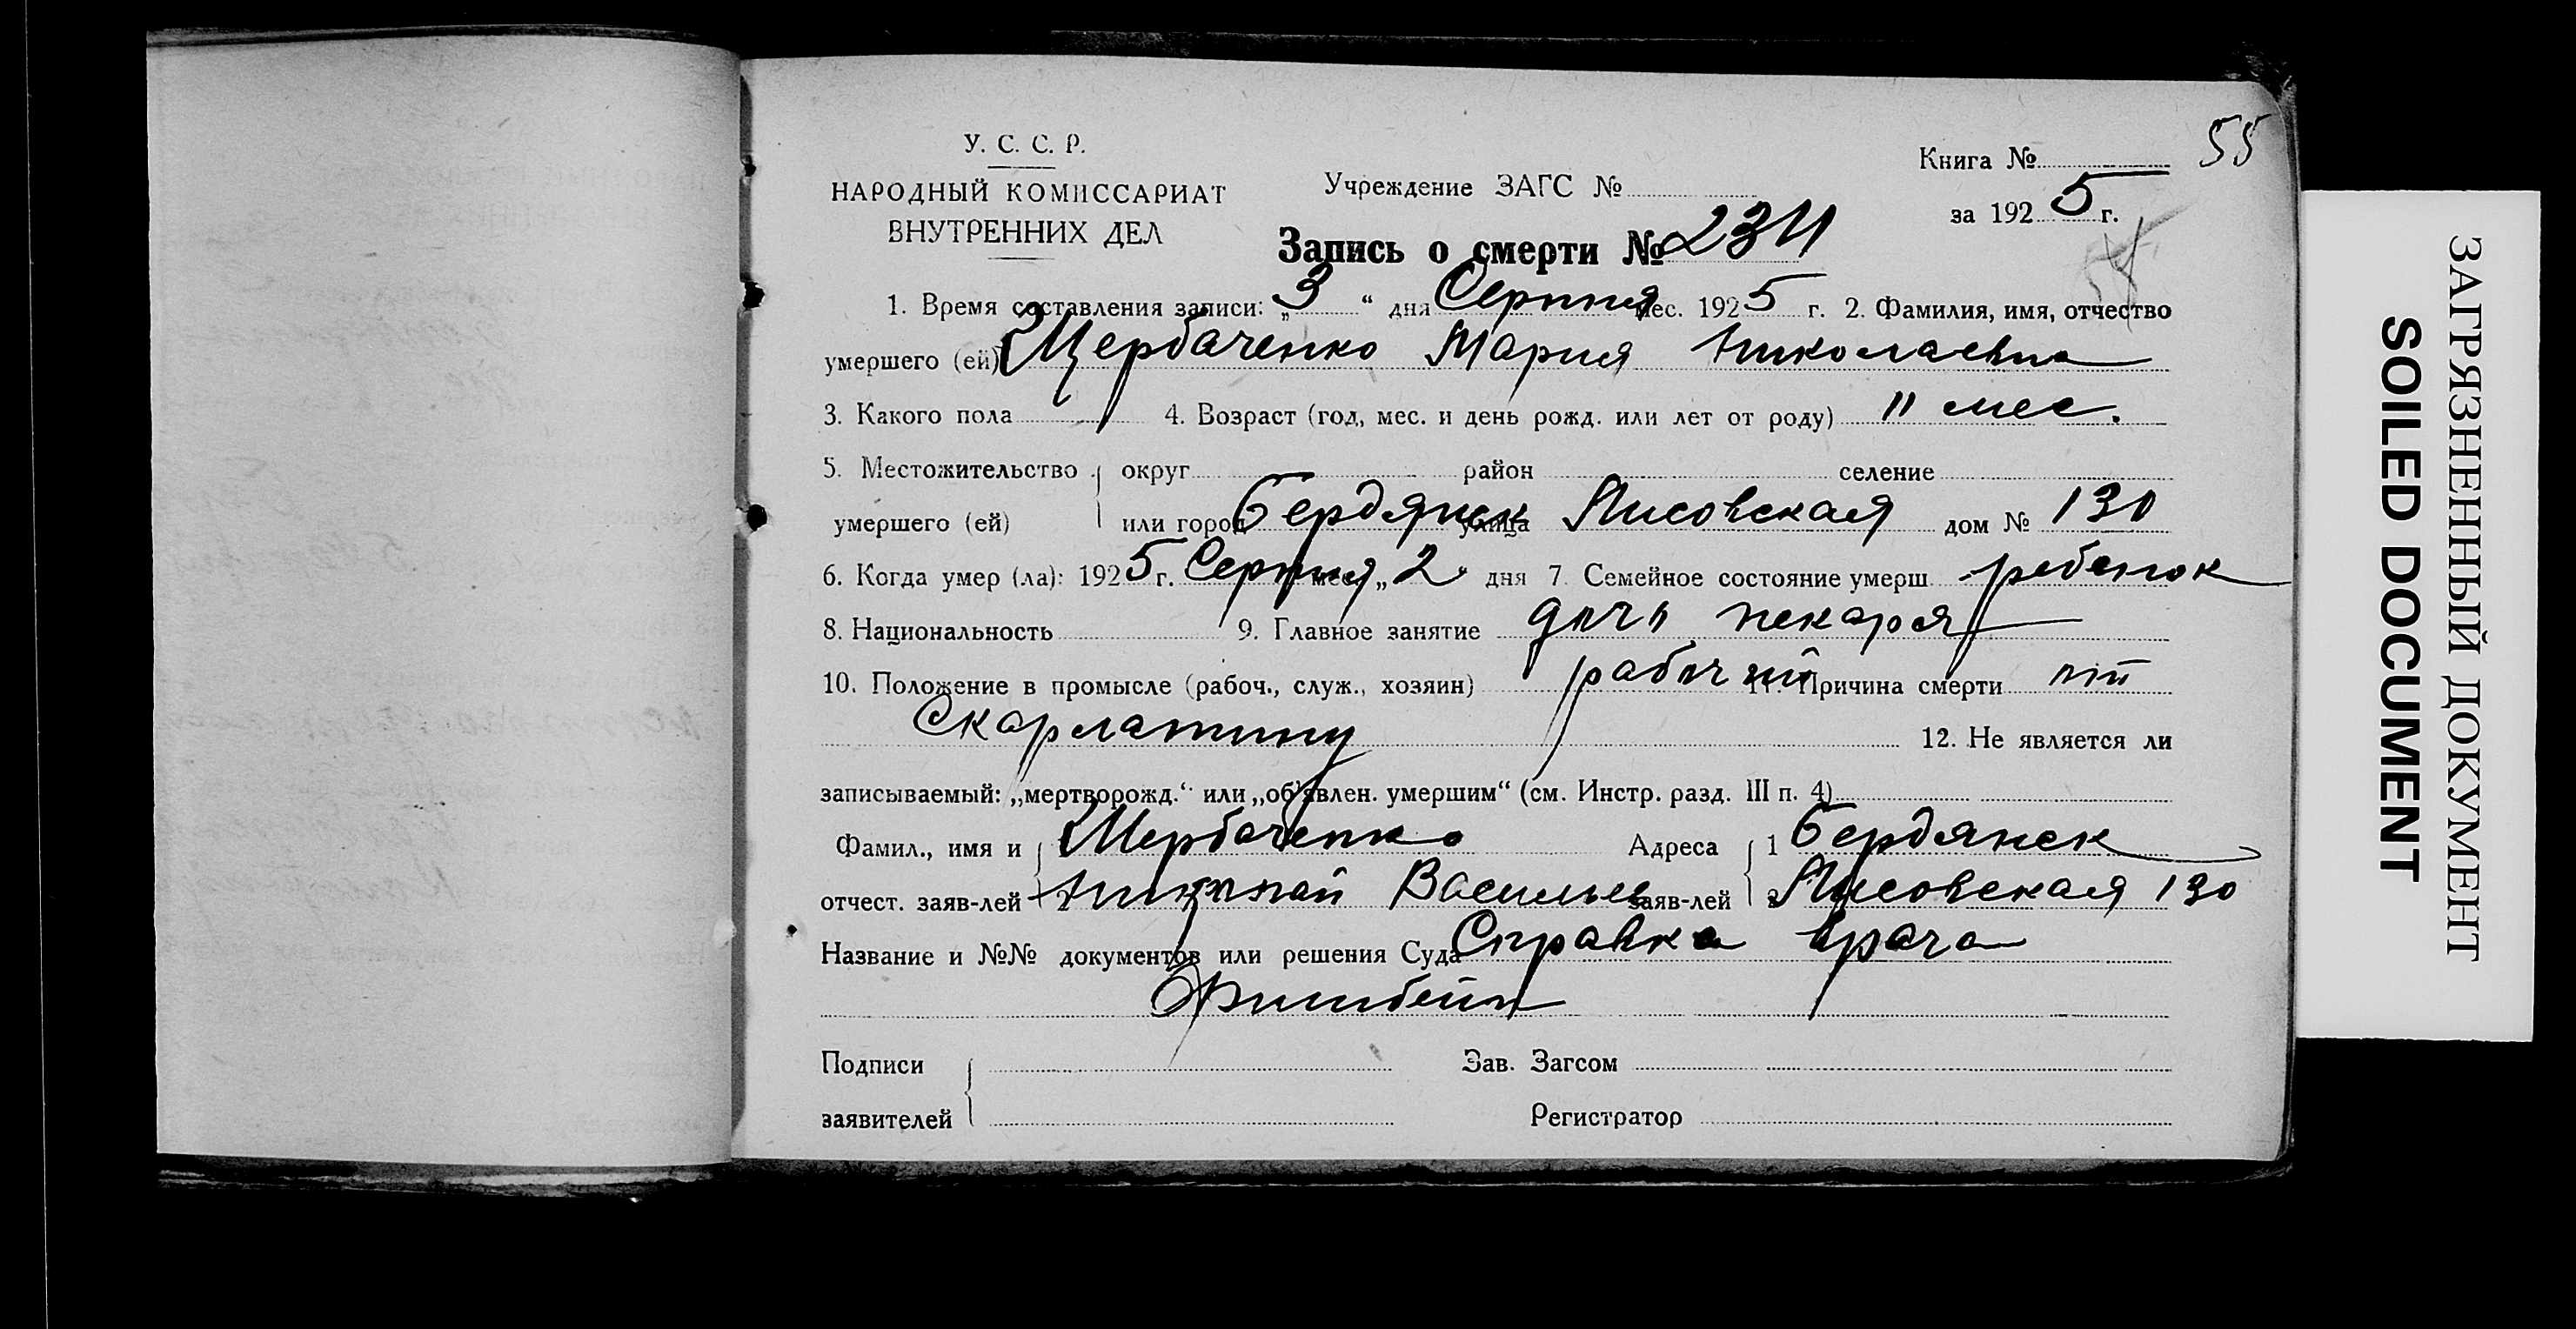 У. С. С. Р.
НАРОДНЫЙ КОМИССАРИАТ
ВНУТРЕННИХ ДЕЛ
Учреждение ЗАГС №
Книга №
55
за 1925 г.
Запись о смерти № 234
1. Время составления записи: „3“ дня Серпня мес. 1925 г. 2. Фамилия, имя, отчество
умершего (ей) Щербаченко Мария Николаевна
3. Какого пола 4. Возраст (год, мес. и день рожд. или лет от роду) 11 мес.
5. Местожительство округ район селение
умершего (ей) или город Бердянск улица Лисовская дом № 130
6. Когда умер (ла): 1925 г. Серпня мес. „2“ дня 7. Семейное состояние умерш. ребенок
8. Национальность 9. Главное занятие дочь пекаря
10. Положение в промысле (рабоч., служ., хозяин) рабочий 11. Причина смерти
Скарлатину 12. Не является ли
записываемый: „мертворожд.“ или „об'явлен. умершим“ (см. Инстр. разд. III п. 4)
Фамил., имя и Щербаченко Адреса 1 Бердянск
отчест. заяв-лей 2 Николай Васильев заяв-лей 2 Лисовская 130
Название и №№ документов или решения Суда Справка врача
Фишбейн
Подписи Зав. Загсом
заявителей Регистратор
ЗАГРЯЗНЕННЫЙ ДОКУМЕНТ
SOILED DOCUMENT